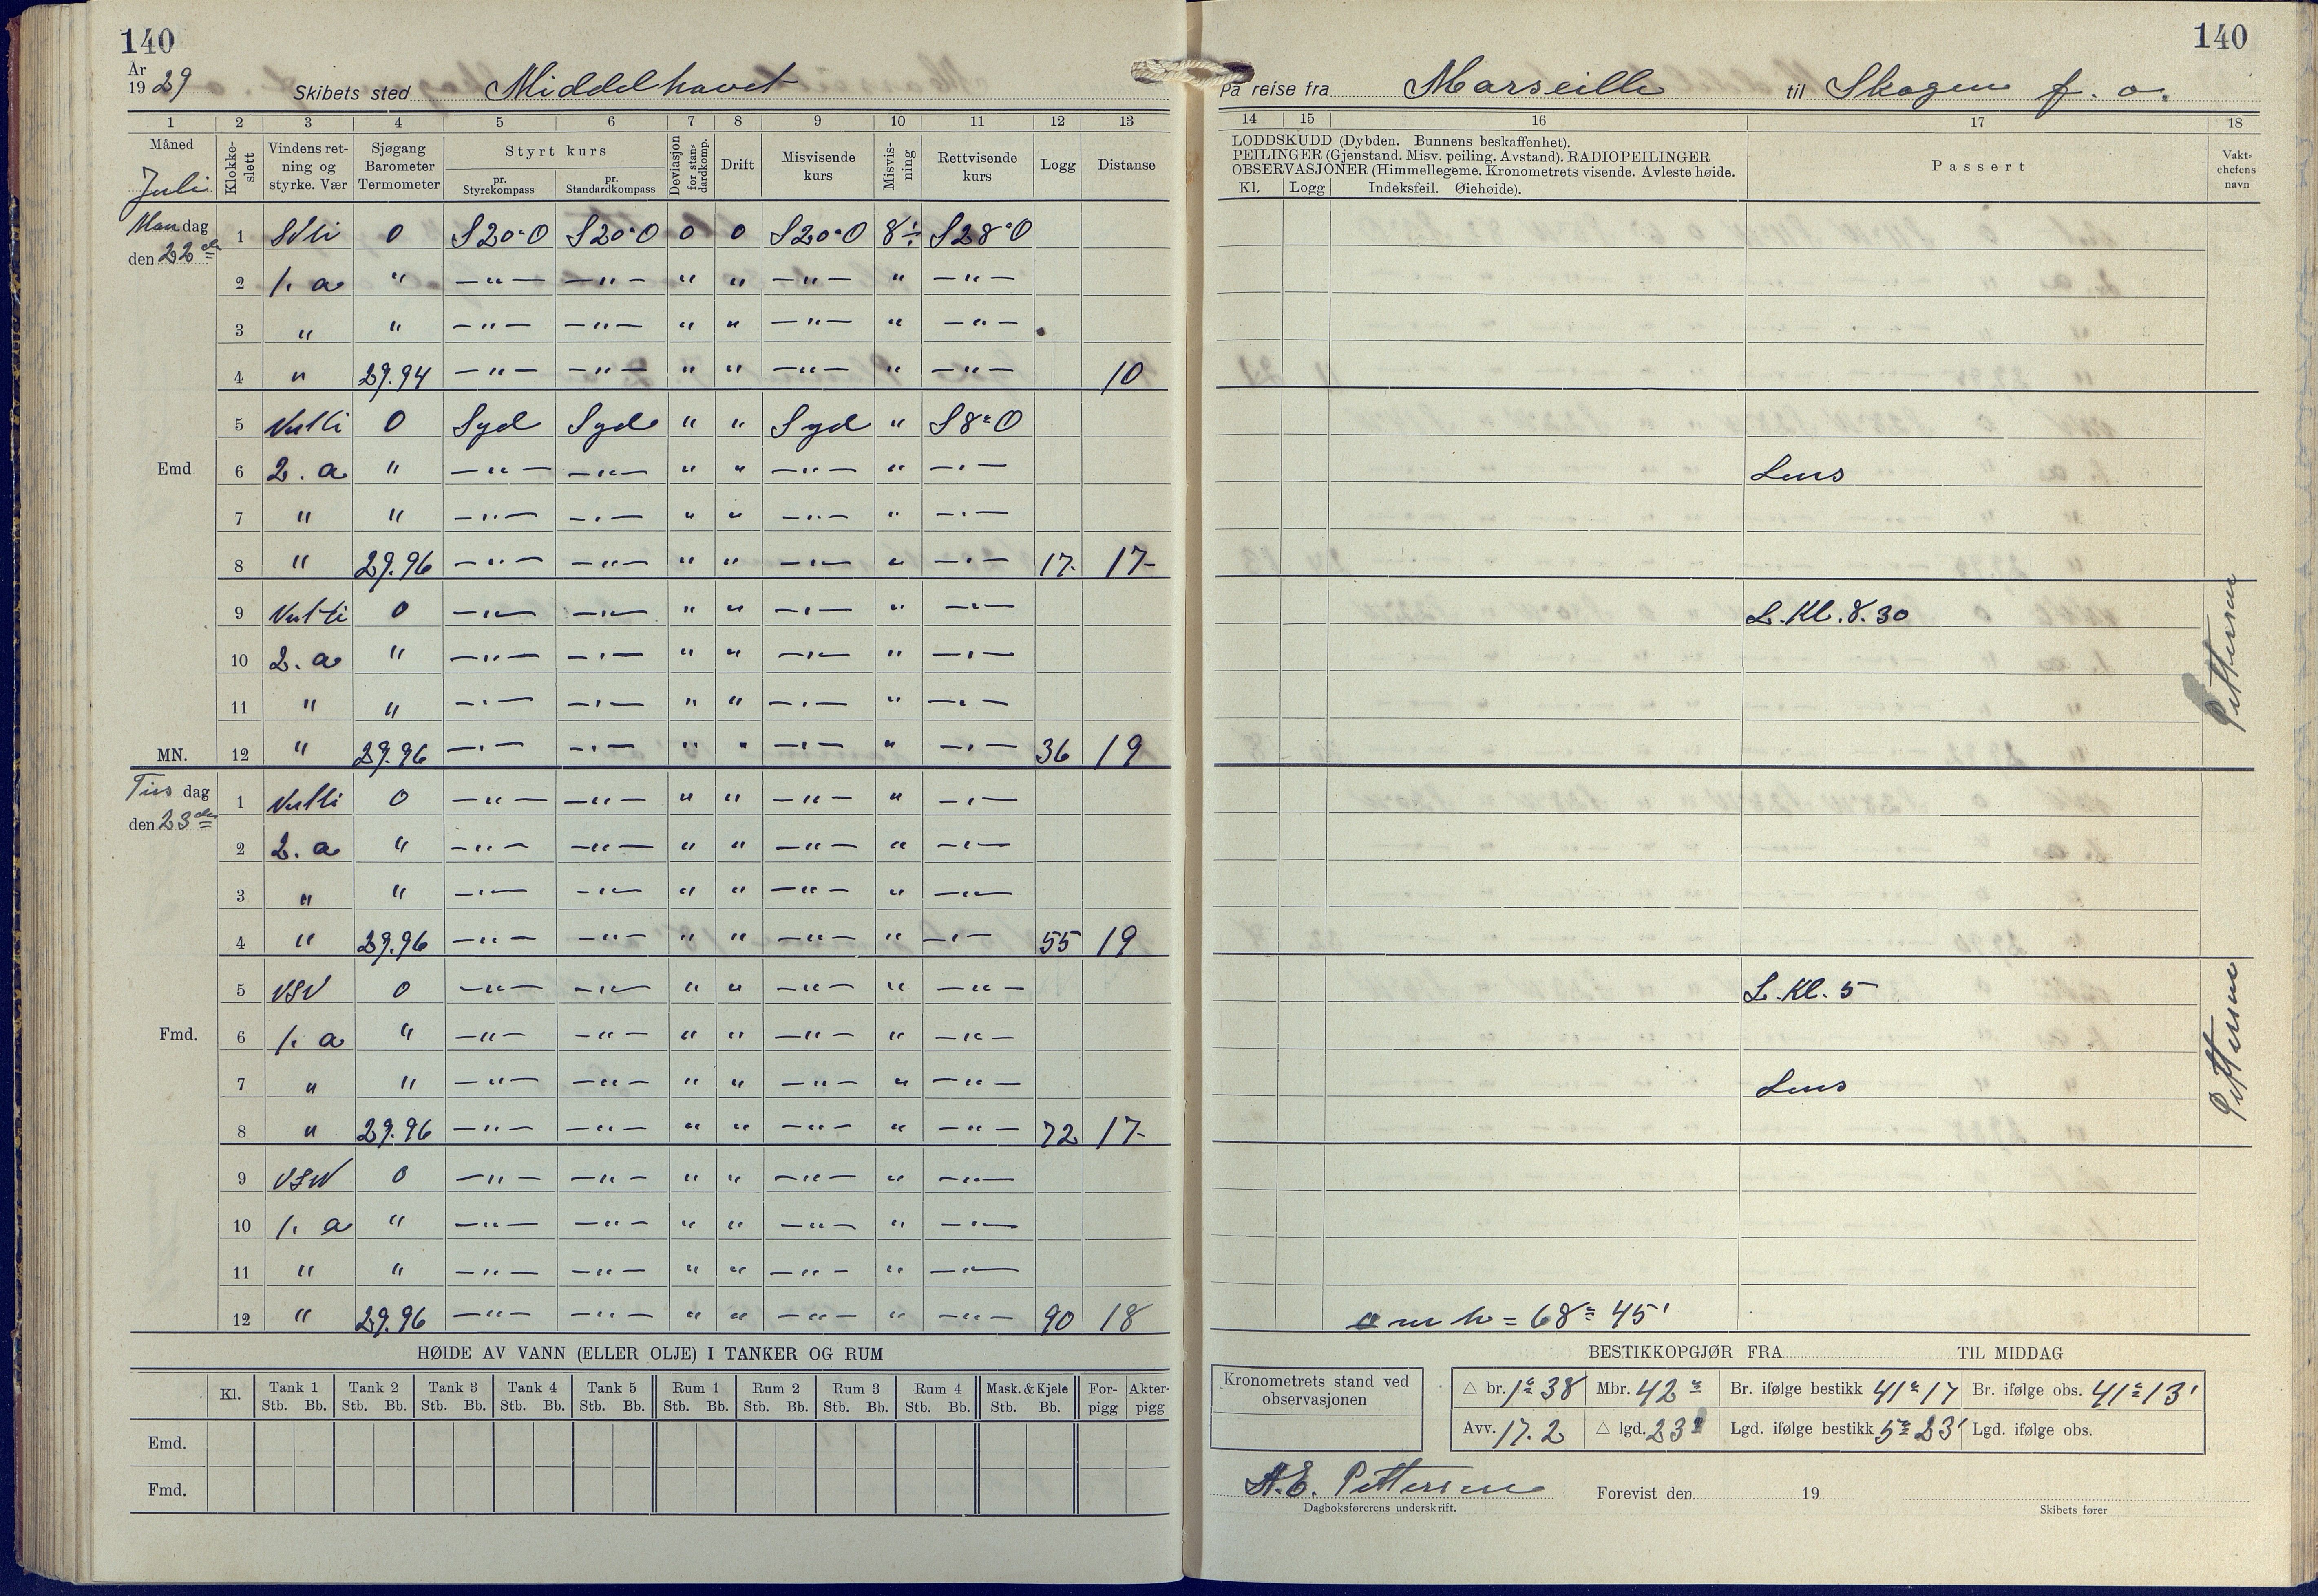 140
År
1929 Skibets sted Middelhavet
1 2 3 4 5 6 7 8 9 10 11 12 13
Måned Juli
Klokke-slett
Vindens ret-ning og styrke. Vær
Sjøgang Barometer Termometer
Styrt kurs
pr. Styrekompass
pr. Standardkompass
Deviasjon for stan-dardkomp.
Drift
Misvisende kurs
Misvis-ning
Rettvisende kurs
Logg
Distanse
Mandag 1 0 S20°O S20°O 0 0 S20°O 8÷ S28°O
den 22de
2 1. a " —"— —"— " " —"— " —"—
3 " " —"— —"— " " —"— " —"—
4 " 29.94 —"— —"— " " —"— " —"— 10
5 0 Syd Syd " " Syd " S8°O
Emd. 6 2. a " —"— —"— " " —"— " —"—
7 " " —"— —"— " " —"— " —"—
8 " 29.96 —"— —"— " " —"— " —"— 17 17
9 0 —"— —"— " " —"— " —"—
10 2. a " —"— —"— " " —"— " —"—
11 " " —"— —"— " " —"— " —"—
MN. 12 " 29.96 —"— —"— " " —"— " —"— 36 19
Tirsdag 1 0 —"— —"— " " —"— " —"—
den 23de
2 2. a " —"— —"— " " —"— " —"—
3 " " —"— —"— " " —"— " —"—
4 " 29.96 —"— —"— " " —"— " —"— 55 19
5 VSV 0 —"— —"— " " —"— " —"—
Fmd. 6 1. a " —"— —"— " " —"— " —"—
7 " " —"— —"— " " —"— " —"—
8 " 29.96 —"— —"— " " —"— " —"— 72 17
9 VSV 0 —"— —"— " " —"— " —"—
10 1. a " —"— —"— " " —"— " —"—
11 " " —"— —"— " " —"— " —"—
12 " 29.96 —"— —"— " " —"— " —"— 90 18
HØIDE AV VANN (ELLER OLJE) I TANKER OG RUM
Kl. Tank 1 Tank 2 Tank 3 Tank 4 Tank 5 Rum 1 Rum 2 Rum 3 Rum 4 Mask. & Kjele For-pigg Akter-pigg
Stb. Bb. Stb. Bb. Stb. Bb. Stb. Bb. Stb. Bb. Stb. Bb. Stb. Bb. Stb. Bb. Stb. Bb. Stb. Bb.
Emd.
Fmd.
140
På reise fra Marseille til Skagen f. o.
14 15 16 17 18
LODDSKUDD (Dybden. Bunnens beskaffenhet).
PEILINGER (Gjenstand. Misv. peiling. Avstand). RADIOPEILINGER
OBSERVASJONER (Himmellegeme. Kronometrets visende. Avleste høide.
Kl. Logg Indeksfeil. Øiehøide).
Passert
Vakt-chefens navn
Lens
L. Kl. 8.30
Pettersen
L. Kl. 5
Lens
Pettersen
m h = 68° 45'
BESTIKKOPGJØR FRA TIL MIDDAG
Kronometrets stand ved observasjonen
△ br. 1° 38 Mbr. 42° Br. ifølge bestikk 41° 17 Br. ifølge obs. 41° 13'
Avv. 17.2 △ lgd. 23 Lgd. ifølge bestikk 5° 23' Lgd. ifølge obs.
A.E. Pettersen Forevist den 19
Dagboksførerens underskrift. Skibets fører